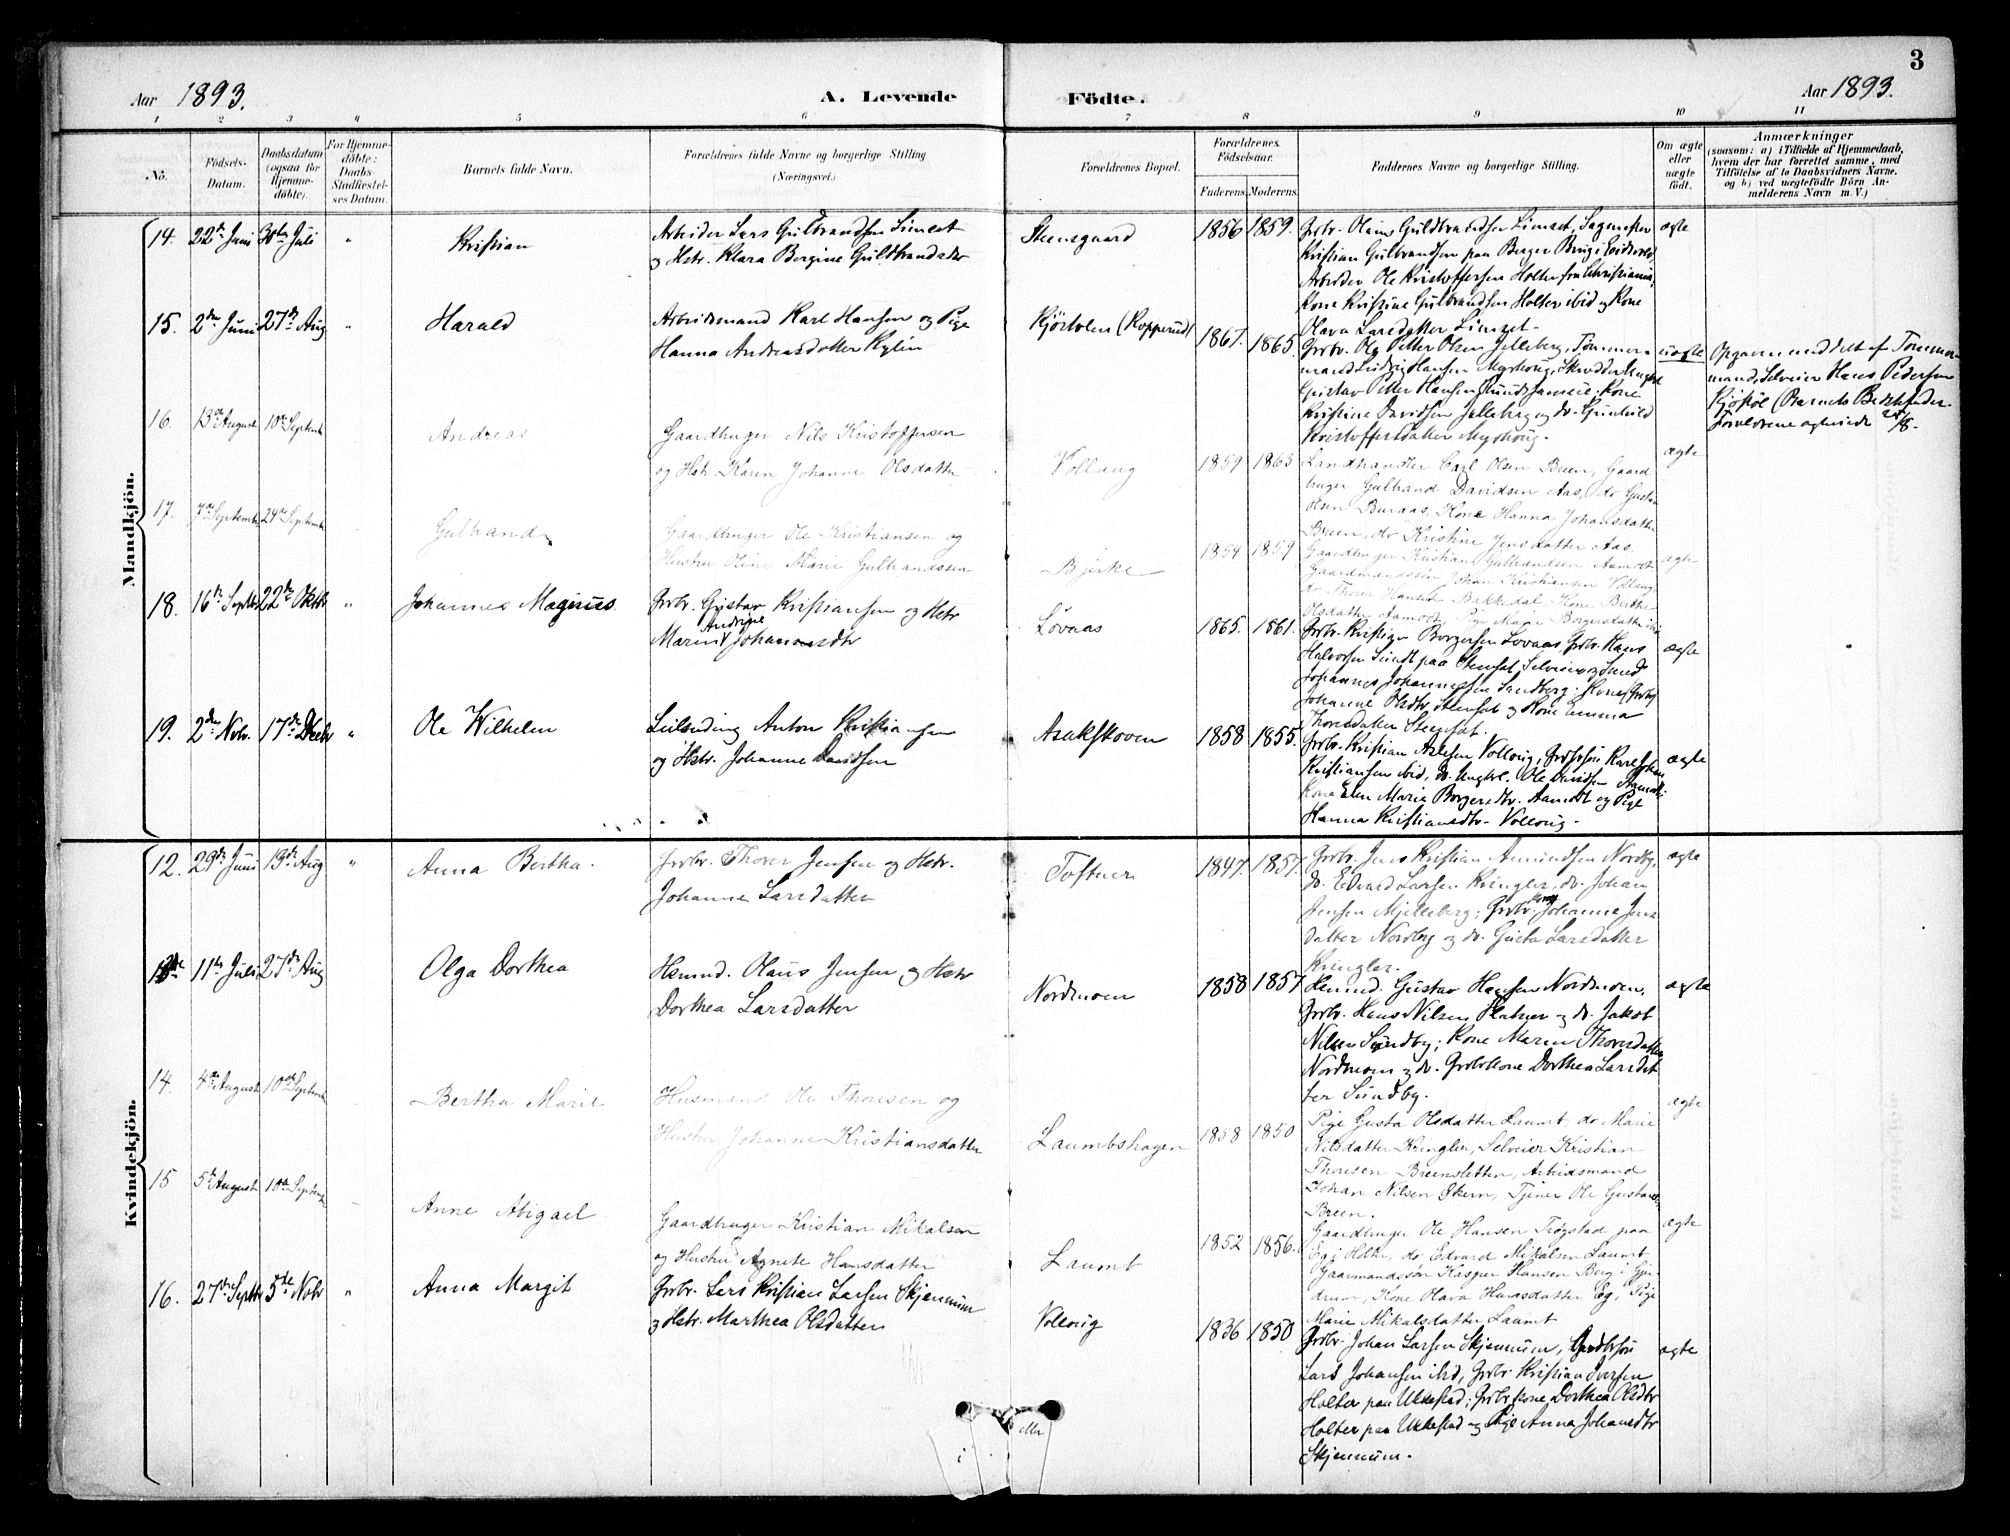 3
Aar 1893.
A. Levende Födte.
Aar 1893.
1 2 3 4 5 6 7 8 9 10 11
No.
Födsels-Datum.
Daabsdatum (ogsaa for Hjemme-döbte).
For Hjemme-döbte: Daabs-Stadfæstel-ses Datum.
Barnets fulde Navn.
Forældrenes fulde Navne og borgerlige Stilling
(Næringsvei.)
Forældrenes Bopæl.
Forældrenes Födselsaar.
Faderens. Moderens.
Faddernes Navne og borgerlige Stilling.
Om ægte eller uægte födt.
Anmærkninger
(saasom: a) i Tilfælde af Hjemmedaab,
hvem der har forrettet samme, med
Tilföielse af to Daabsvidners Navne.
og b) ved uægtefödte Börn An-
melderens Navn m. V.)
Mandkjön.
14. 22de Juni 30te Juli " Kristian
Arbeider Lars Gulbrandsen Limset
og Hstr. Klara Bergine Gulbrandsdtr
Steensgaard 1856 1859.
Grbr. Olaus Guldbrandsen Limset, Sagmester
Kristian Gulbrandsen paa Berger Brug i Eidsvold,
Arbeider Ole Kristoffersen Holter fra Christiania,
Kone Kristine Gulbrandsen Holter ibid og Kone
Olava Larsdatter Limset.
ægte
15. 2den Juni 27de Aug " Harald
Arbeidsmand Karl Hansen og Pige
Hanna Andreasdatter Kylin
Kjörtolen (Kopperud) 1867. 1865.
Grbr. Ole Petter Olsen Jelleberg, Tömmer-
mand Ludvig Hansen Myrhoug, Skrædder Ungkl
Gustav Petter Hansen Kone
Kristine Davidsen Jelleberg og do. Gunhild
Kristoffersdatter Myrhoug.
uægte
Opgaven meddelt af Tömmer-
mand, Selveier Hans Pedersen
(Barnets Bedstefader.
Forældrene agtviede 24/8.
16. 13de August 10de Septemb Andreas
Gaardbruger Nils Kristoffersen
og Hstr. Karen Johanne Olsdatter
Vollaug 1859 1863
Landhandler Carl Olsen Breen, Gaard-
bruger Gulbrand Davidsen Aas, do Gustav
Olsen Buraas, Kone Hanna Johansdatter
Breen, do Kristine Jensdatter Aas.
ægte
17. 7de Septemb 24de Septemb Gulbrand
Gaardbruger Ole Kristiansen og
Hustru Oline Marie Gulbrandsen
Bjerke 1854 1859
Gaardbruger Kristian Gulbrandsen Aamodt
Gaardmandssön Johan Kristiansen Vollaug,
do Thorer Hansen Bakkedal, Kone Berthe
Olsdatter Aamodt, Pige Marie Borgersdatter ibid
ægte
18. 16de Septbr 22de Oktbr " Johannes Magnus
Grbr. Gustav Kristiansen og Hstr
Maren Andrine Johannesdtr
Lövaas 1865. 1861.
Grbr. Kristian Borgersen Lovaas, Grbr. Hans
Halvorsen Sundt paa Stensat, Selveier og Smed
Johannes Johannessen Sandberg; Kone (Grbr)
Johanne Olsdtr. Stensat og Kone Emma
Thorsdatter Steensat.
ægte
19. 2den Novbr. 17de Decbr " Ole Wilhelm
Leilending Anton Kristiansen
og Hstr. Johanne Davidsen
Asakskoven 1858 1855.
Grbr. Kristian Axelsen Volloug, Grdsösön Karl Johan
Kristiansen ibid, do. Ungkl. Ole Davidsen Aamodt;
Kone Elen Maria Borgersdtr. Aamodt og Pige
Hanna Kristiansdtr. Volloug.
ægte
Kvindekjön.
12. 29de Juni 13de Aug " Anna Bertha.
Grbr. Thorer Jensen og Hstr.
Johanne Larsdatter
Toftner 1847. 1857.
Grbr. Jens Kristian Amundsen Nordby,
do. Edvard Larsen Kringler, do. Johan
Jensen Mjelleberg; Grbr. Kone Johanne Jens
datter Nordby og do. Gusta Larsdatter
Kringler.
ægte
13de 11te Juli 27de Aug Olga Dorthea
Hsmnd. Olaus Jensen og Hstr
Dorthea Larsdatter
Nordmoen 1858 1857
Hsmnd. Gustav Hansen Nordmoen,
Grbr. Hans Nilsen Flatner og do. Jakob
Nilsen Sundby; Kone Maren Thorsdatter
Nordmoen og do. Grbrkone Dorthea Larsdat
ter Sundby.
ægte
14. 4de August 10de Septemb Bertha Marie
Husmand Ole Thorsen og
Hustru Johanne Kristiansdatter
Laumbshagen 1858 1850
Pige Gusta Olsdatter Laumt, do Marie
Nilsdatter Kringler, Selveier Kristian
Thorsen Breensletten, Arbeidsmand
Johan Nilsen Skern, Tjener Ole Gustavsen
Breen.
ægte
15 5te August 10de Septemb Anne Abigael
Gaardbruger Kristian Mikalsen
og Hustru Agnete Hansdatter
Laumt 1852 1856.
Gaardbruger Ole Hansen Trögstad paa
Eg i Holter, do Edvard Mikalsen Laumt
Gaarmandssön Kasper Hansen Berg i Gjer-
drum, Kone Olava Hansdatter Eg, Pige
Marie Mikalsdatter Laumt
ægte
16. 27de Septbr 5te Novbr " Anna Margit
Grbr. Lars Kristian Larsen Skjennum
og Hstr. Marthea Olsdatter
Volloug 1836 1850
Grbr. Johan Larsen Skjennum, Gaardbrsön
Lars Johansen ibid, Grbr. Kristian Iversen
Holter paa Ukkestad; Grbr. kone Dorthea Olsdtr
Holter paa Ukkestad og Pige Anna Johansdtr
Skjennum.
ægte